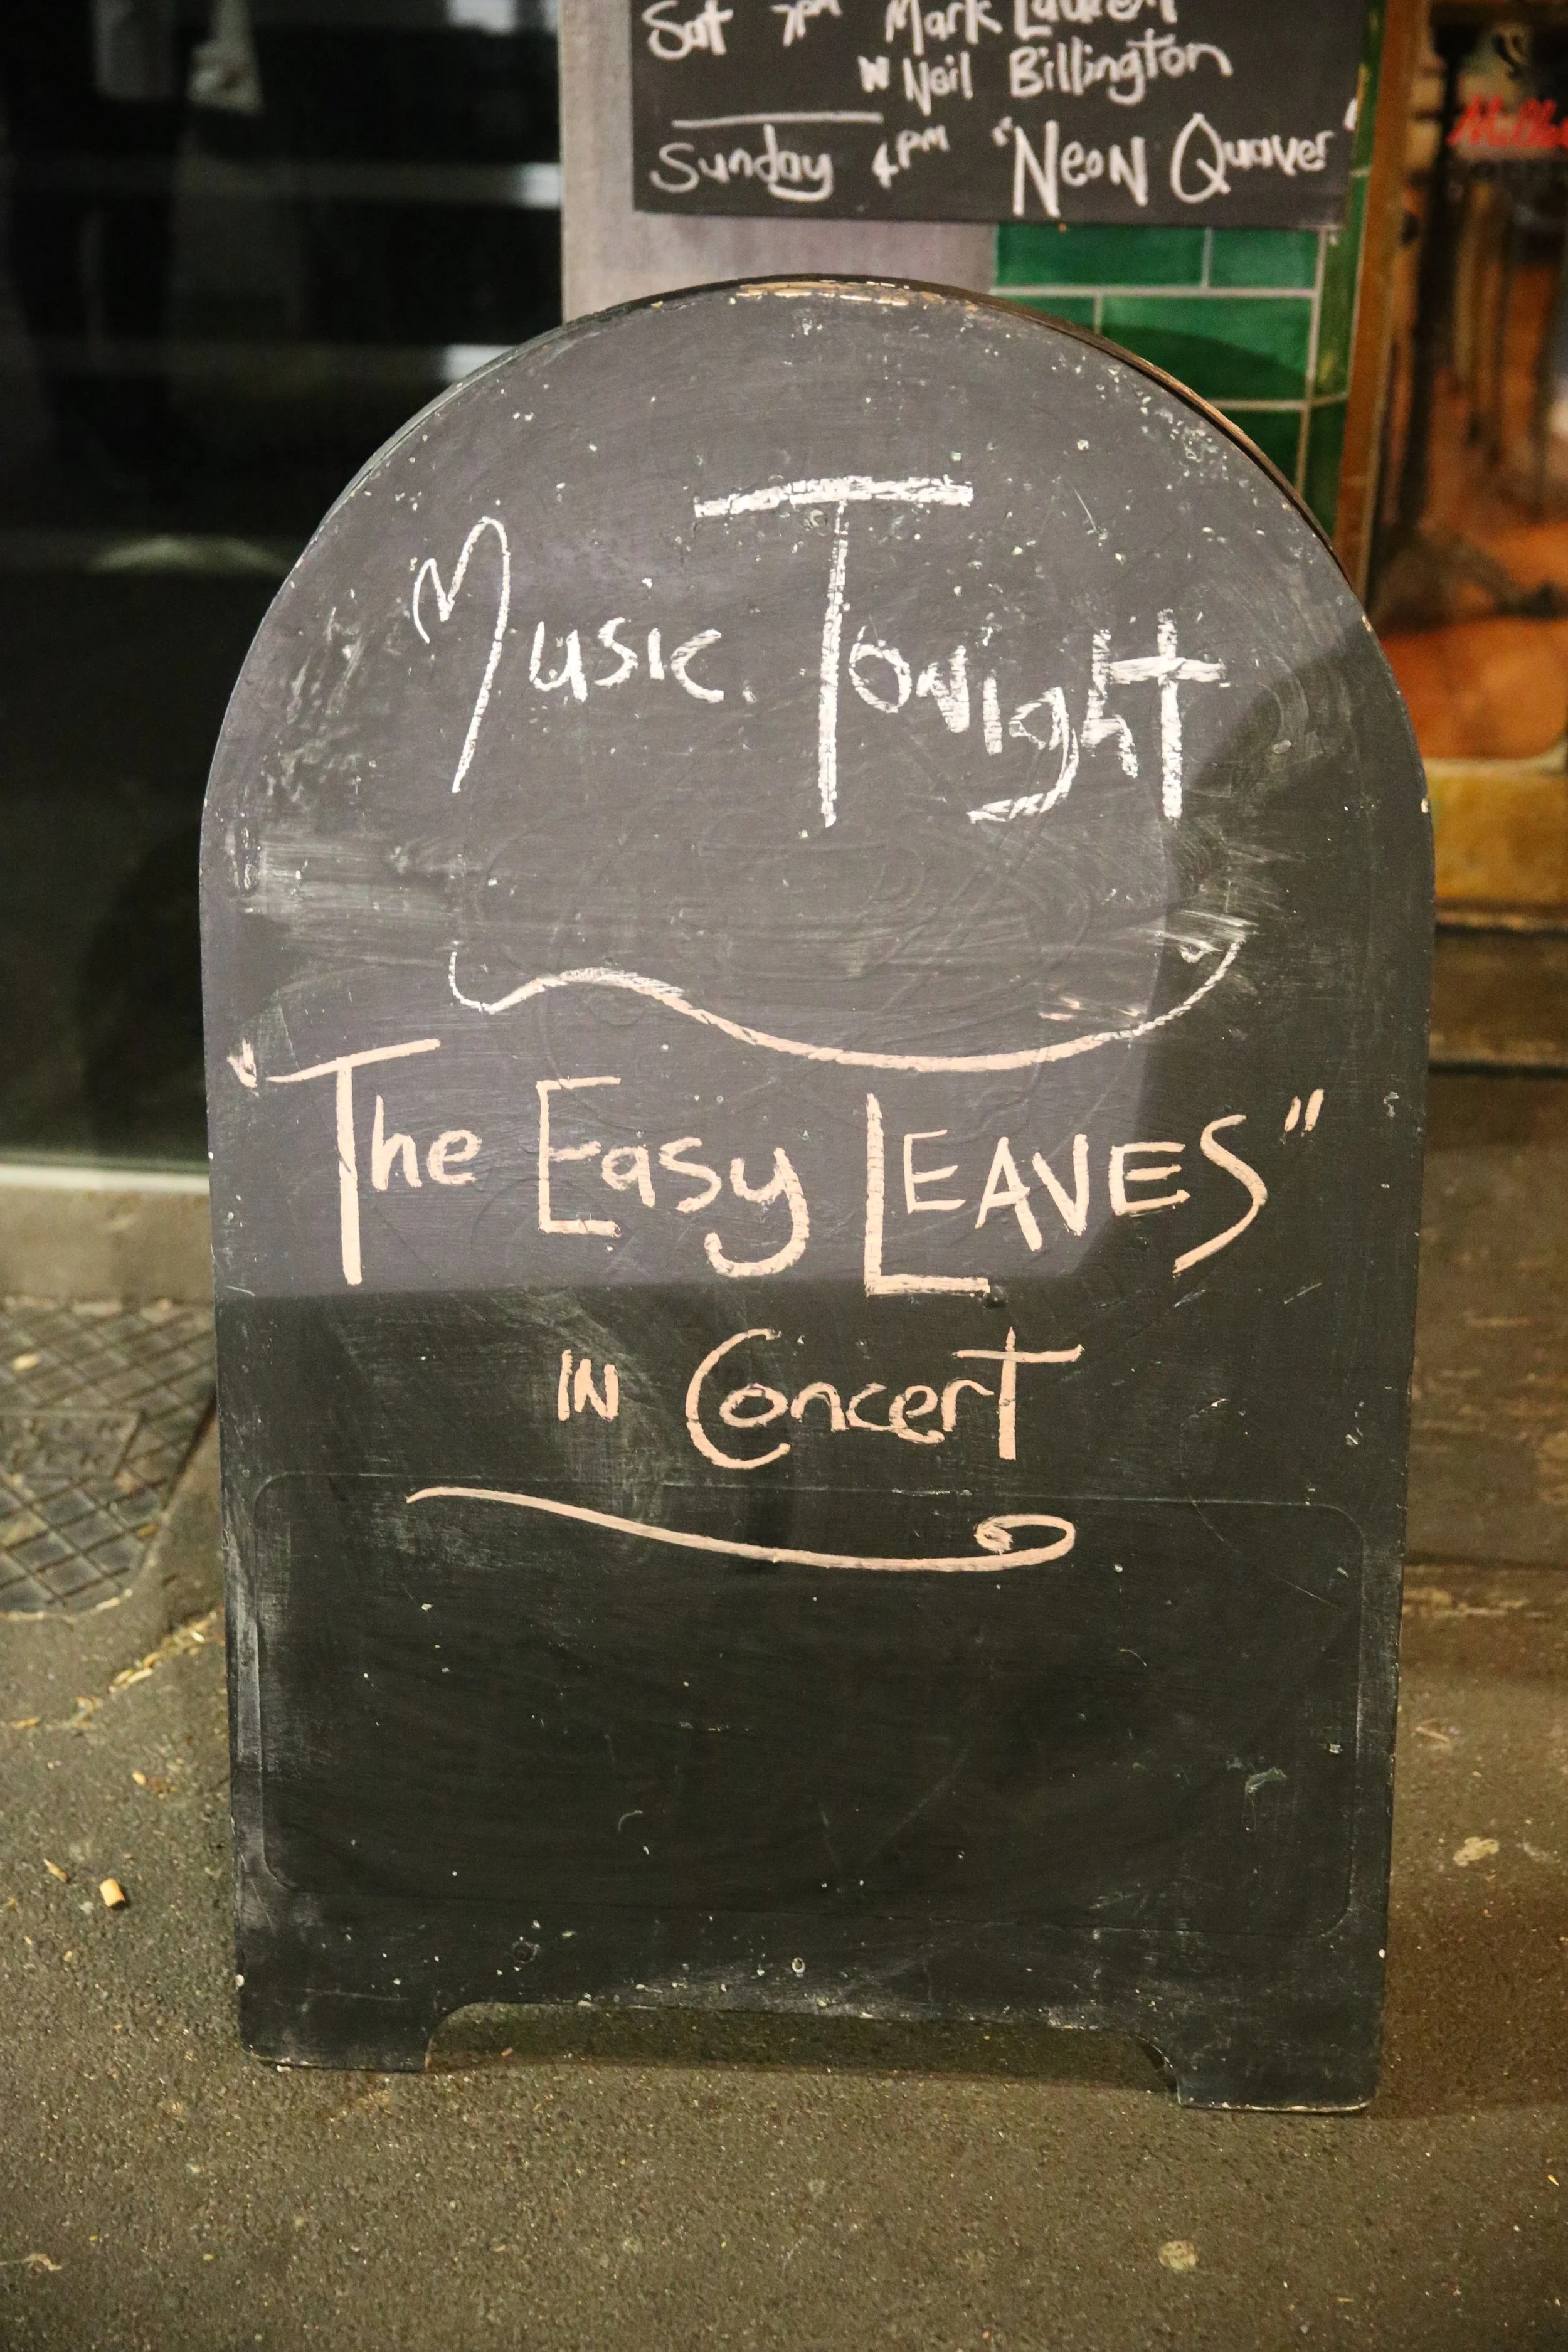 Sat 7PM Mark Lauren
w Neil Billington
Sunday 4PM "Neon Quaver"
Music Tonight
"The Easy LEAVES"
IN Concert